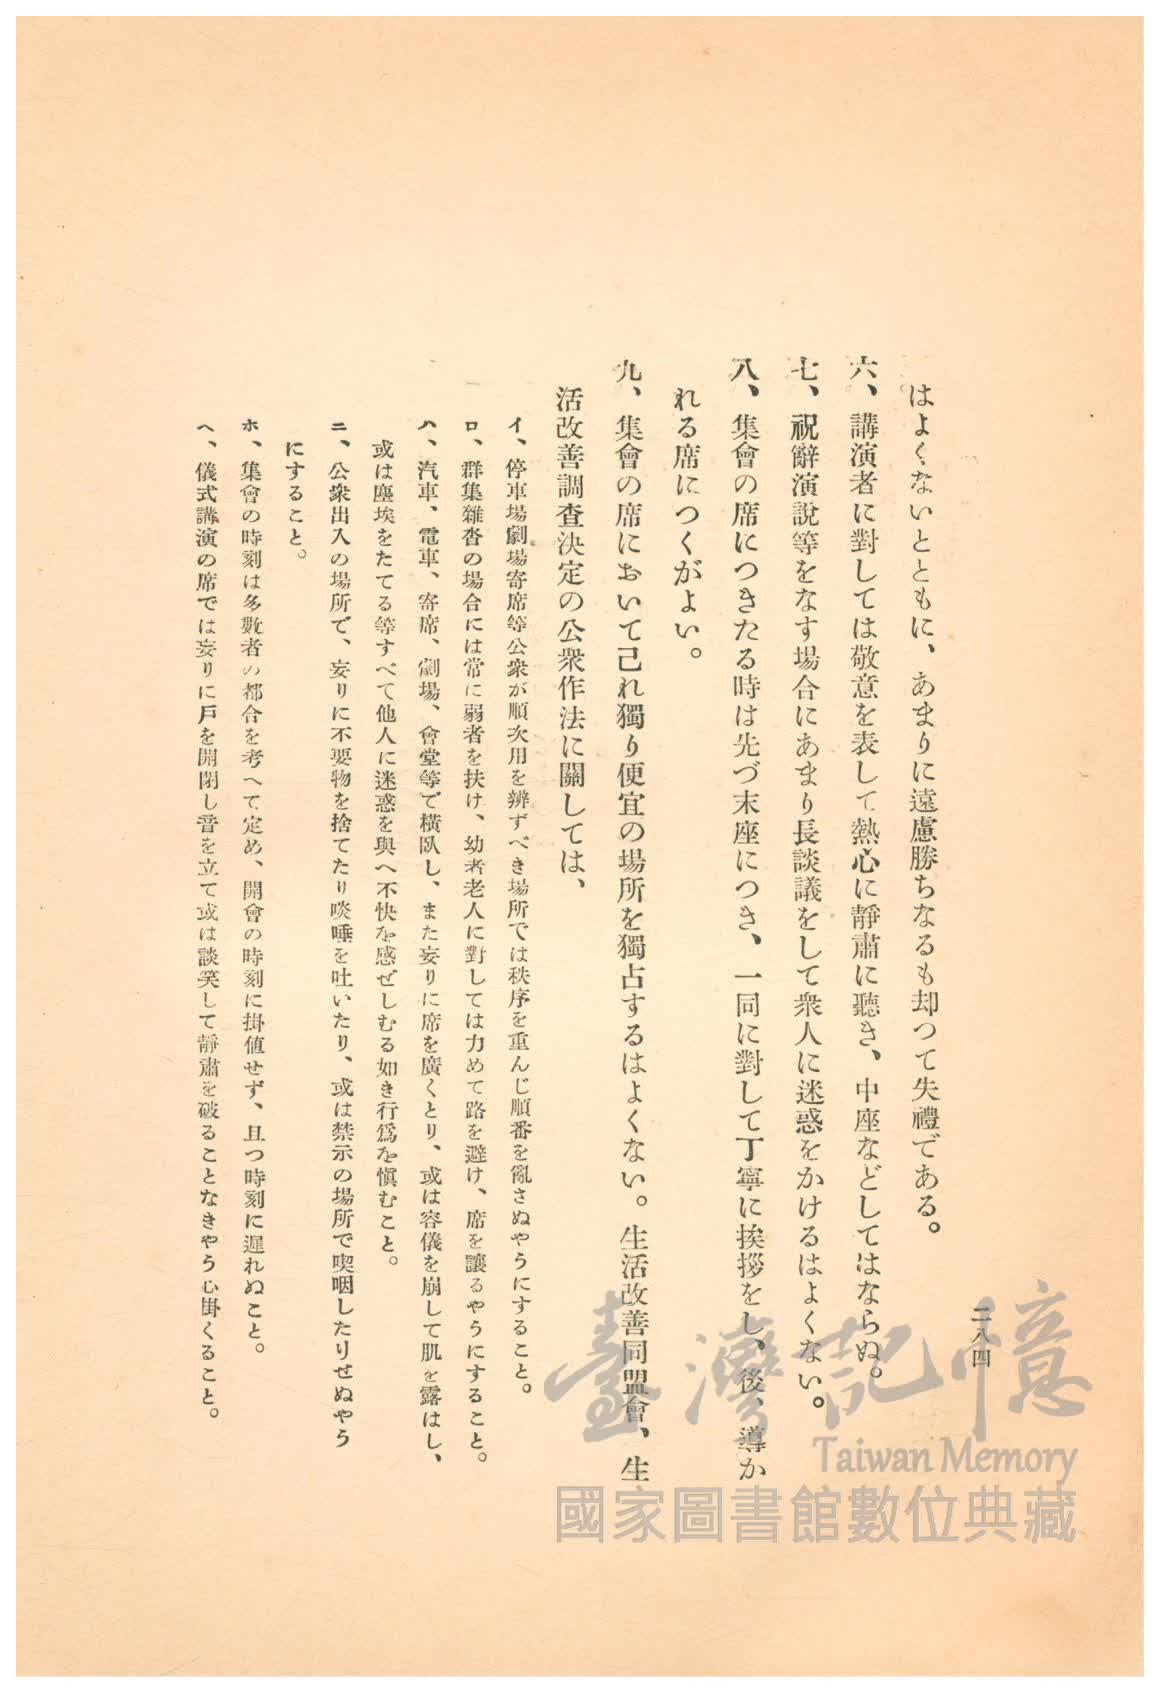 二八四
はよくないとともに、あまりに遠慮勝ちなるも却つて失禮である。
六、講演者に對しては敬意を表して熱心に靜肅に聽き、中座などしてはならぬ。
七、祝辭演說等をなす場合にあまり長談議をして衆人に迷惑をかけるはよくない。
八、集會の席につきたる時は先づ末座につき、一同に對して丁寧に挨拶をし、後、導か
れる席につくがよい。
九、集會の席において己れ獨り便宜の場所を獨占するはよくない。生活改善同盟會、生
活改善調査決定の公衆作法に關しては、
イ、停車場劇場寄席等公衆が順次用を辨ずべき場所では秩序を重んじ順番を亂さぬやうにすること。
ロ、群集雜沓の場合には常に弱者を扶け、幼者老人に對しては力めて路を避け、席を讓るやうにすること。
ハ、汽車、電車、寄席、劇場、會堂等で橫臥し、また妄りに席を廣くとり、或は容儀を崩して肌を露はし、
或は塵埃をたてる等すべて他人に迷惑を與へ不快を感ぜしむる如き行爲を愼むこと。
ニ、公衆出入の場所で、妄りに不要物を捨てたり啖唾を吐いたり、或は禁示の場所で喫咽したりせぬやう
にすること。
ホ、集會の時刻は多數者の都合を考へて定め、開會の時刻に掛値せず、且つ時刻に遲れぬこと。
ヘ、儀式講演の席では妄りに戶を開閉し音を立て或は談笑して靜肅を破ることなきやう心掛くること。
臺灣記憶
Taiwan Memory
國家圖書館數位典藏